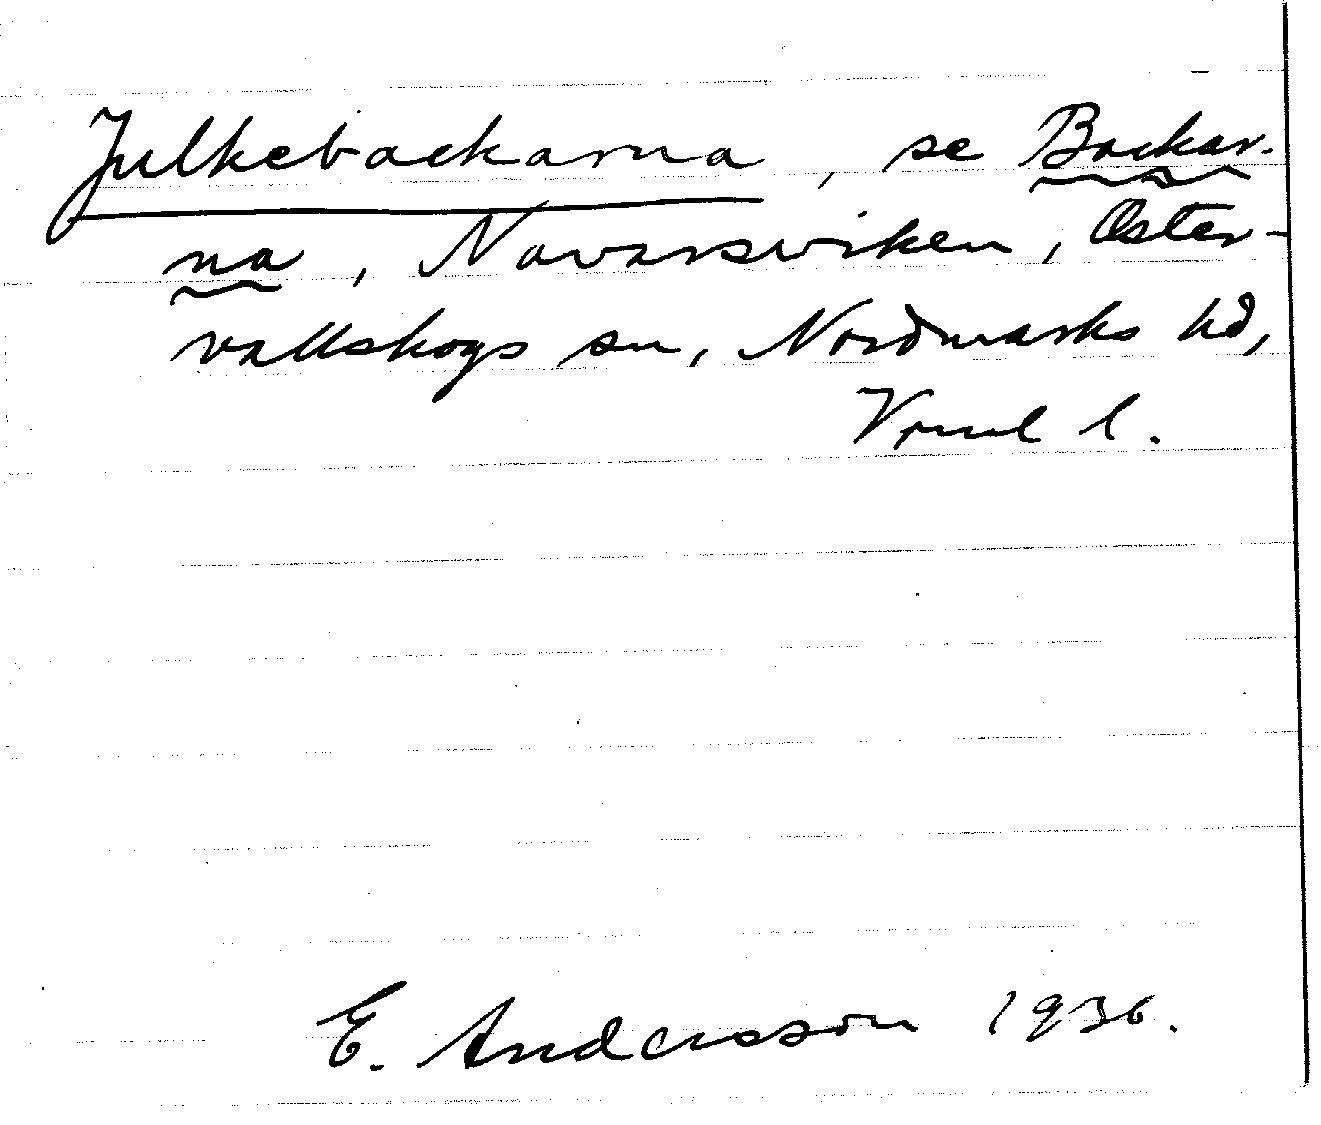 Julkebackarna, se Backar-
na, Navarsviken, Öster-
vallskogs sn, Nordmarks hd,
Vrml l.
E. Andersson 1936.